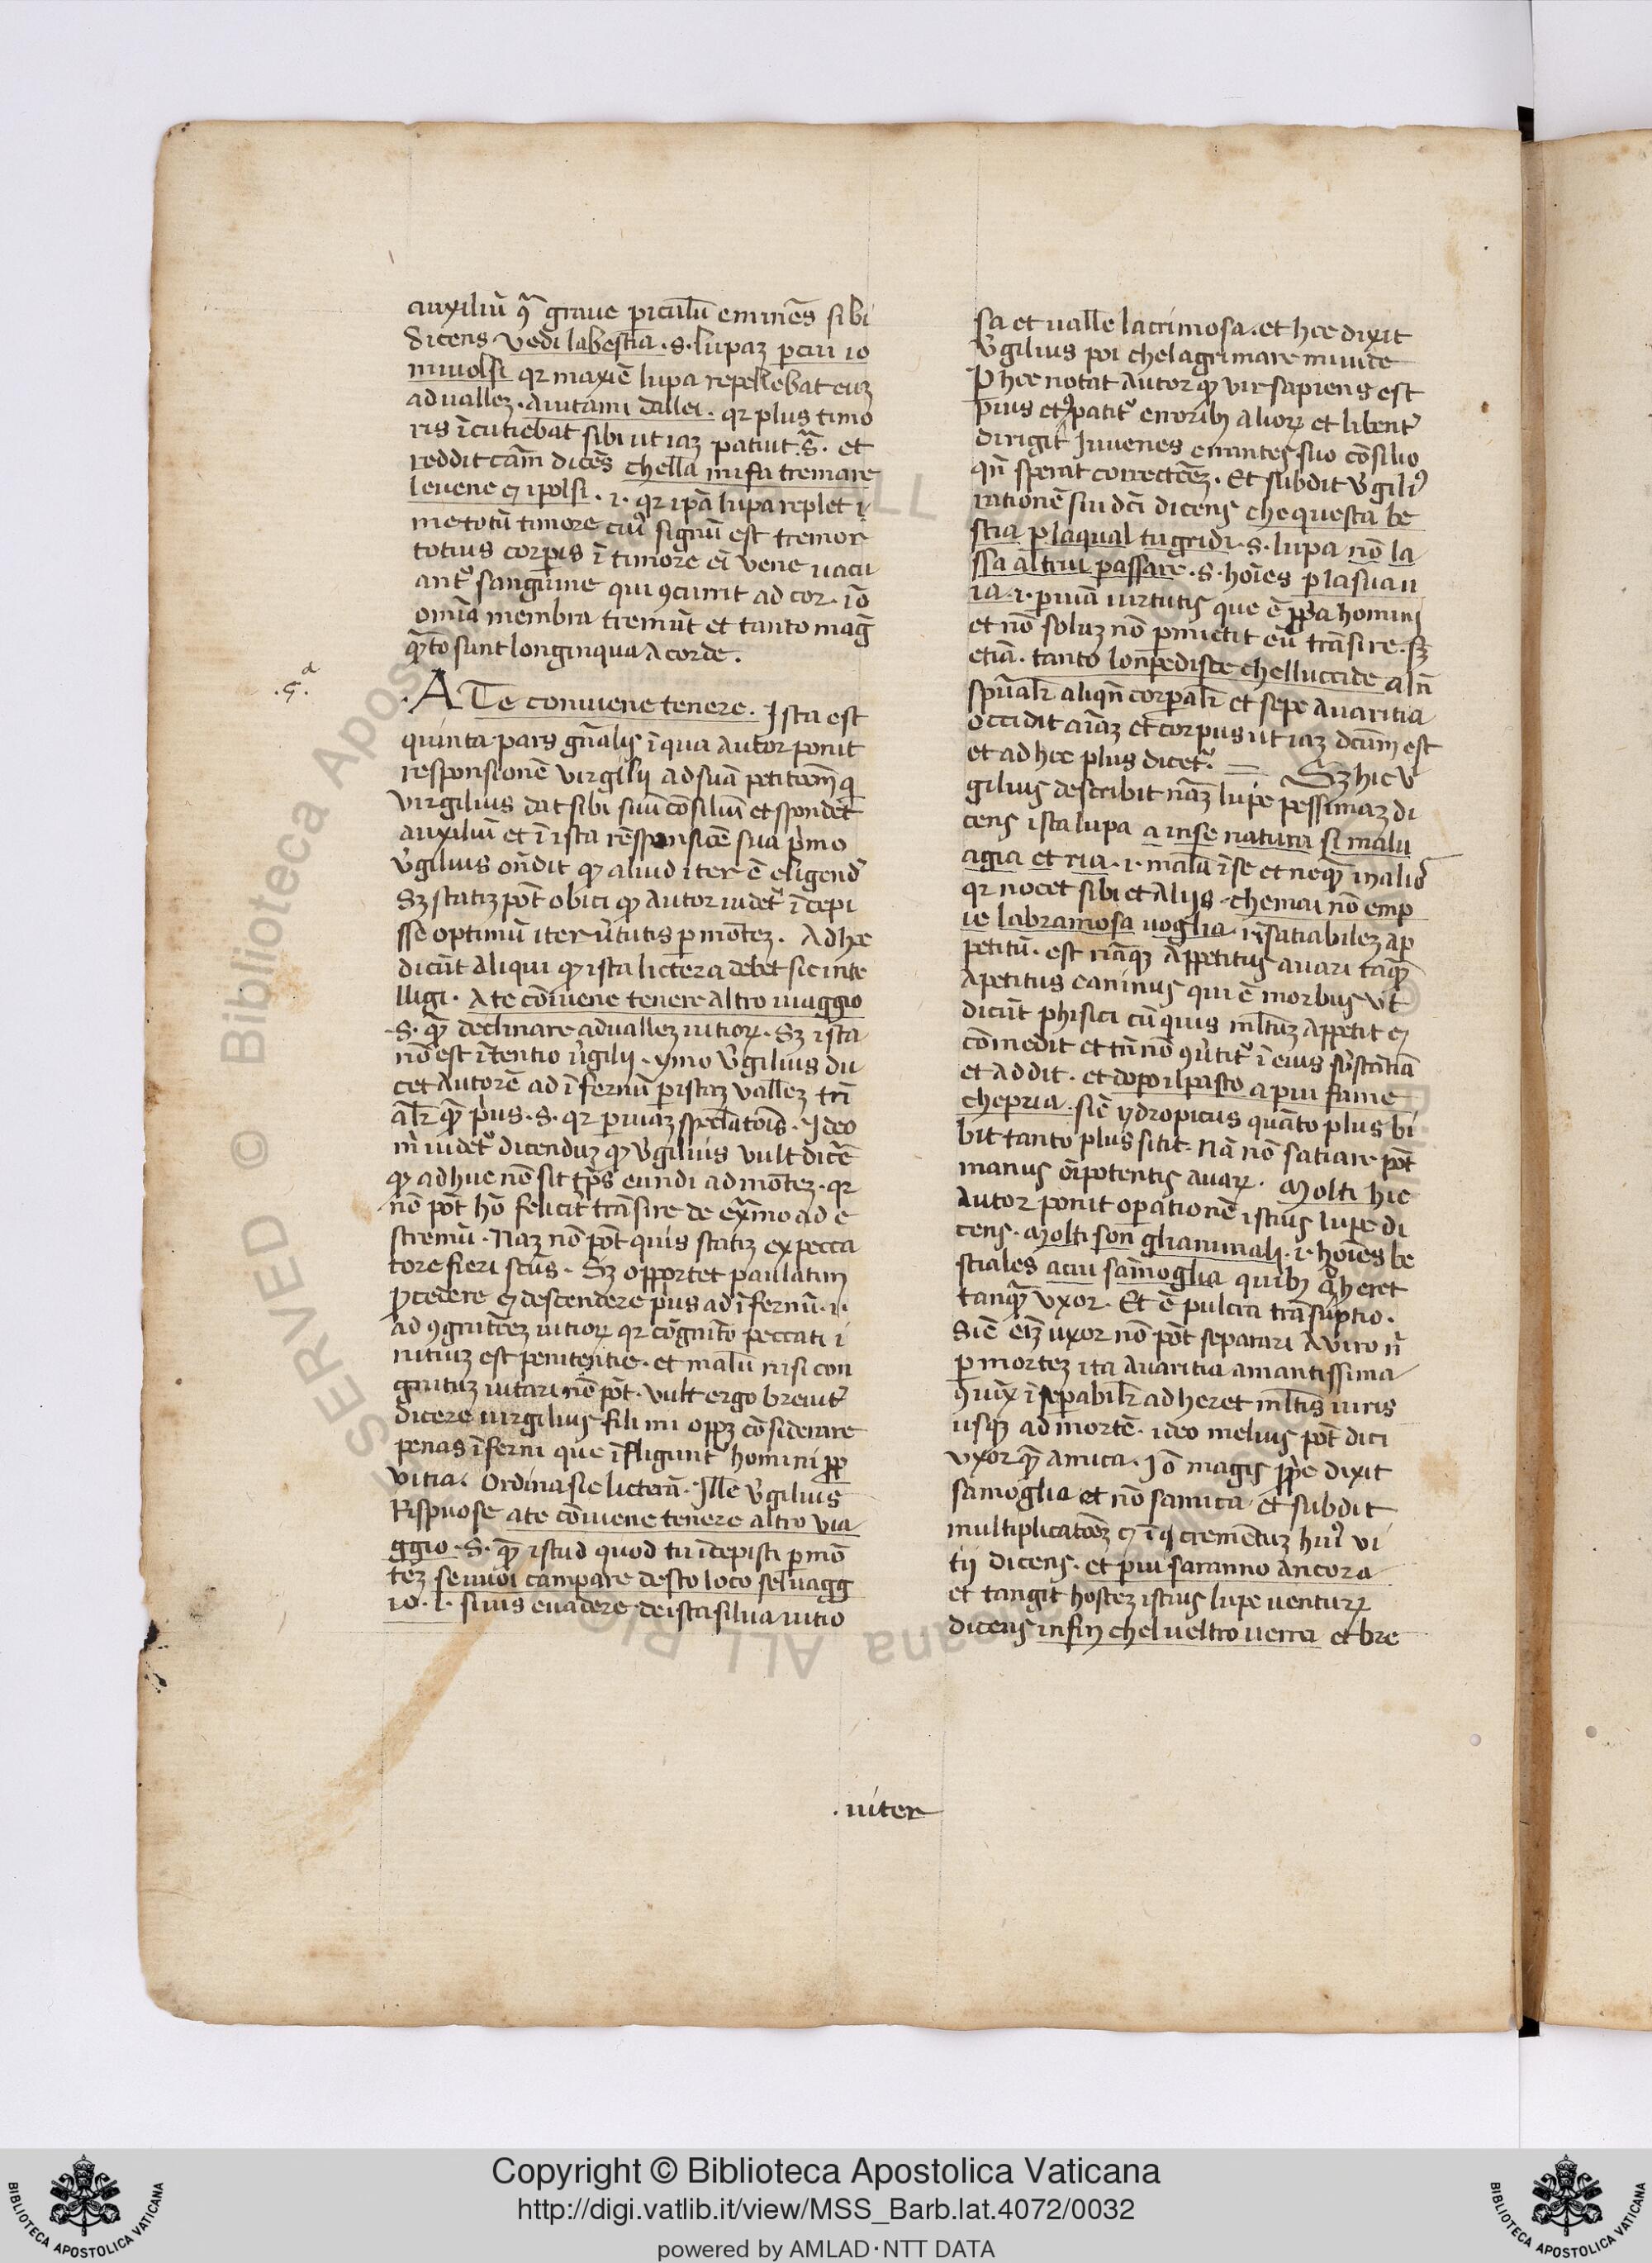 auxiliū ꝯtͣ graue ꝑiculū eminēs sibi
dicens vedi labestia . s . lupaȝ ꝑcui io
miuolsi qꝛ maxīe lupa repellebat euȝ
ad uallez . aiutami dallei . qꝛ plus timo
ris īcutiebat sibi ut iaȝ patuit sͣ . et
reddit cām dicēs chella mi fa tremare
leuene ⁊ ipolsi . i . qꝛ ipā lupa replet ī
me totū timore cuiꝰ signū est tremor
totius corꝑis ī timore eī vene uacu
ant᷑ sanguine qui ꝯcurrit ad cor . iō
omīa membra tremūt et tanto maḡ
qͣ̄to sunt longinqua a corde .
. 5ͣ .
. A Te conuiene tenere . Ista est
quinta pars gn̄alis ī qua autor ponit
responsionē virgilij ad suā petitōem qͥ
virgilius dat sibi suū cōsiliū et spondet
auxiliū et ī ista responsiōe sua pͥmo
v̉gilius on̄dit ꝙ aliud iter ē eligend᷑
Sȝ statiȝ pōt obici ꝙ autor uidet᷑ īcepi
sse optimū iter v̉tutis ꝑ mōteȝ . Ad hec
dicūt aliqui ꝙ ista lictera debet sic inte
lligi . Ate cōuiene tenere altro uiaggio
. s . qͣ̄ declinare ad uallez uitioꝝ . Sȝ ista
nō est ītentio v̉gilij . ymo v̉gilius du
cet autorē ad īfernū ꝑ istaȝ vallez
al̄r qͣ̄ pͥus . s . qꝛ ꝑ uiaȝ speclatōis . Ideo
m̄ uidet᷑ dicenduȝ ꝙ v̉gilius vult dicē
ꝙ adhuc nō sit tp̄s eundi ad mōteȝ . qꝛ
nō pōt hō feliciť trāsire de ex̄ͣmo ad e
stremū . Naȝ nō pōt quis statiȝ ex pecca
tore fieri scūs . Sȝ opportet paulatim
ꝓcedere ⁊ descendere pͥus ad īfernū . i .
ad ꝯgnitōeȝ uitioꝝ qꝛ cōgnitō peccati i
nitiuȝ est penitentie . et malū nisi con
gnituȝ uitari nō pōt . vult ergo breuiť
dicere uirgilius fili mi opꝫ cōsiderare
penas īferni que īfligunt᷑ homini ꝓp̄
vitia . Ordina sic licterā . Ille v̉gilius
Rispuose ate cōuiene tenere altro via
ggio . s . qͣ̄ istud quod tu īcepisti ꝑ mō
teȝ se uuoi campare desto loco seluagg
io . i . si uis euadere de ista silua uitio
sa et ualle lacrimosa . et hec dixit
v̉gilius poi chelagrimare mi uide
ꝑ hec notat autor ꝙ vir sapiens est
pius et ꝯpatit᷑ erroribꝫ alioꝝ et libenť
dirigit Iuuenes errantes suo cōsilio
qn̄ sperat correctōeȝ . Et subdit v̉giliꝰ
rationē sui dc̄i dicens che questa be
stia ꝑ laqual tu gridi . s . lupa nō la
ssa altrui passare . s . hoīes ꝑ la sua u
ia . i . ꝑ uiā uirtutis que ē ꝓp̄a homini
et nō soluȝ nō ꝑmictit eū trāsire . sȝ
etiā . tanto lonpedisce chelluccide aln̄
spūal̄r aliqn̄ corꝑal̄r et sepe auaritia
occidit aīaȝ et corpus ut iaȝ dcūm est
et ad hec plus dicet᷑ . = Sȝ hic v̉
gilius describit nāȝ lupe pessimaȝ di
cens ista lupa a in se natura si malu
agia et ria . i . mala ī se et neqͣ̄ in aliōꝝ
qꝛ nocet sibi et alijs . che mai nō emp
ie la bramosa uoglia . īsatiabileȝ ap
petitū . est nāqꝫ appetitus auari taqͣ̄
apetitus caninus qui ē morbus vt
dicūt phisici cū quis ml̄tuȝ appetit ⁊
cōmedit et tn̄ nō ꝯv̉tit᷑ ī eius sb̄stātiā
et addit . et dopo il pasto a piu fame
che pria . sic ydropicus quāto plus bi
bit tanto plus sitit . Nā nō satiare pōt
manus oīpotentis auaꝝ . Molti hic
autor ponit oꝑationē istius lupe di
cens . Molti son glianimali . i . hoīes be
stiales acui samoglia quibꝫ adheret
tanqͣ̄ vxor . Et ē pulcra trāsūptio .
Sic eīȝ uxor nō pōt separari a uiro nͥ
ꝑ morteȝ ita auaritia amantissima
ꝯiux īseꝑabil̄r adheret ml̄tis uiris
usqꝫ ad mortē . ideo melius pōt dici
vxor qͣ̄ amica . Iō magis ꝓp̄e dixit
samoglia et nō samica . et subdit
multiplicatōeȝ ⁊ īcrementuȝ huiꝰ vi
tij dicens . et piu saranno ancora
et tangit hosteȝ istius lupe ventuꝝ
dicens infin chel ueltro uerra et bre
. uiter
Copyright © Biblioteca Apostolica Vaticana
http://digi.vatlib.it/view/MSS_Barb.lat.4072/0032
powered by AMLAD·NTT DATA